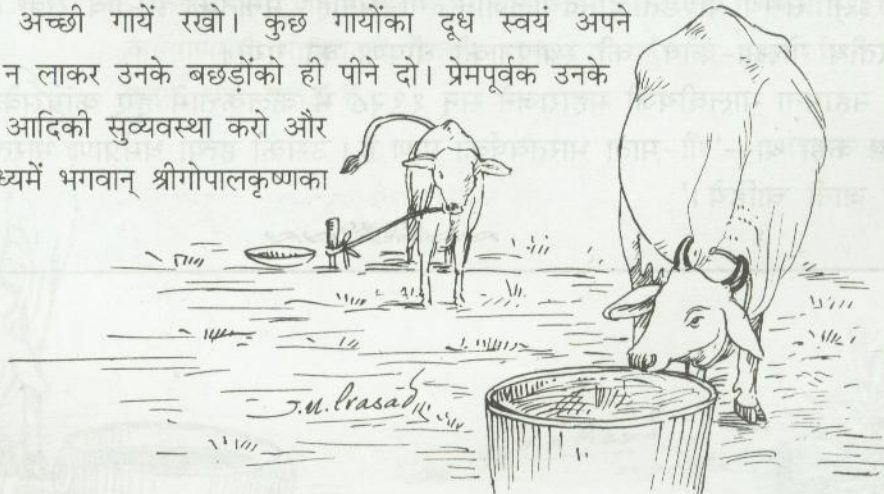 अच्छी गायें रखो। कुछ गायोंका दूध स्वयं अपने
न लाकर उनके बछड़ोंको ही पीने दो। प्रेमपूर्वक उनके
आदिकी सुव्यवस्था करो और
ध्यमें भगवान् श्रीगोपालकृष्णका
J.M. Prasad